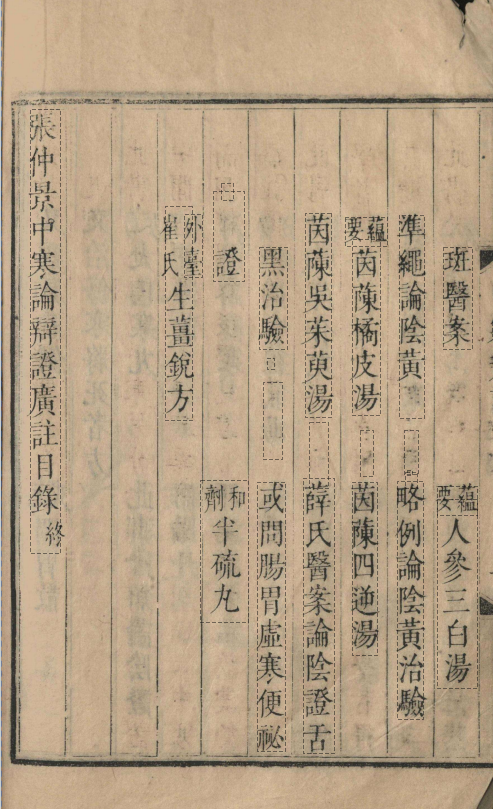 斑醫案 蘊要人參三白湯
準繩論陰黃 略例論陰黃治驗
蘊要茵蔯橘皮湯 茵蔯四逆湯
茵蔯吳茱萸湯 薛氏醫案論陰證舌
黑治驗 或問腸胃虛寒便祕
證 和劑半硫丸
外臺崔氏生薑銳方
張仲景中寒論辯證廣註目錄終